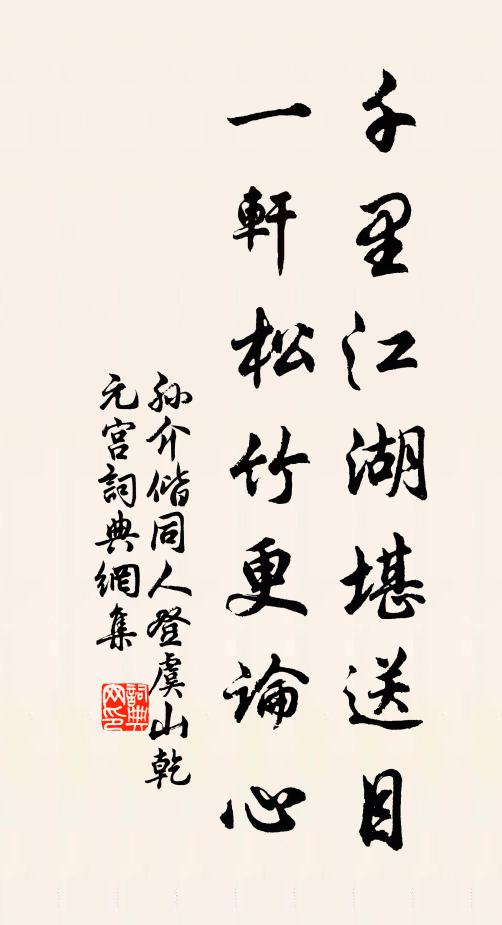 千里江湖堪送目
一軒松竹更論心
孙介偕同人登虞山乾
元宫詞典網集
詞典网印